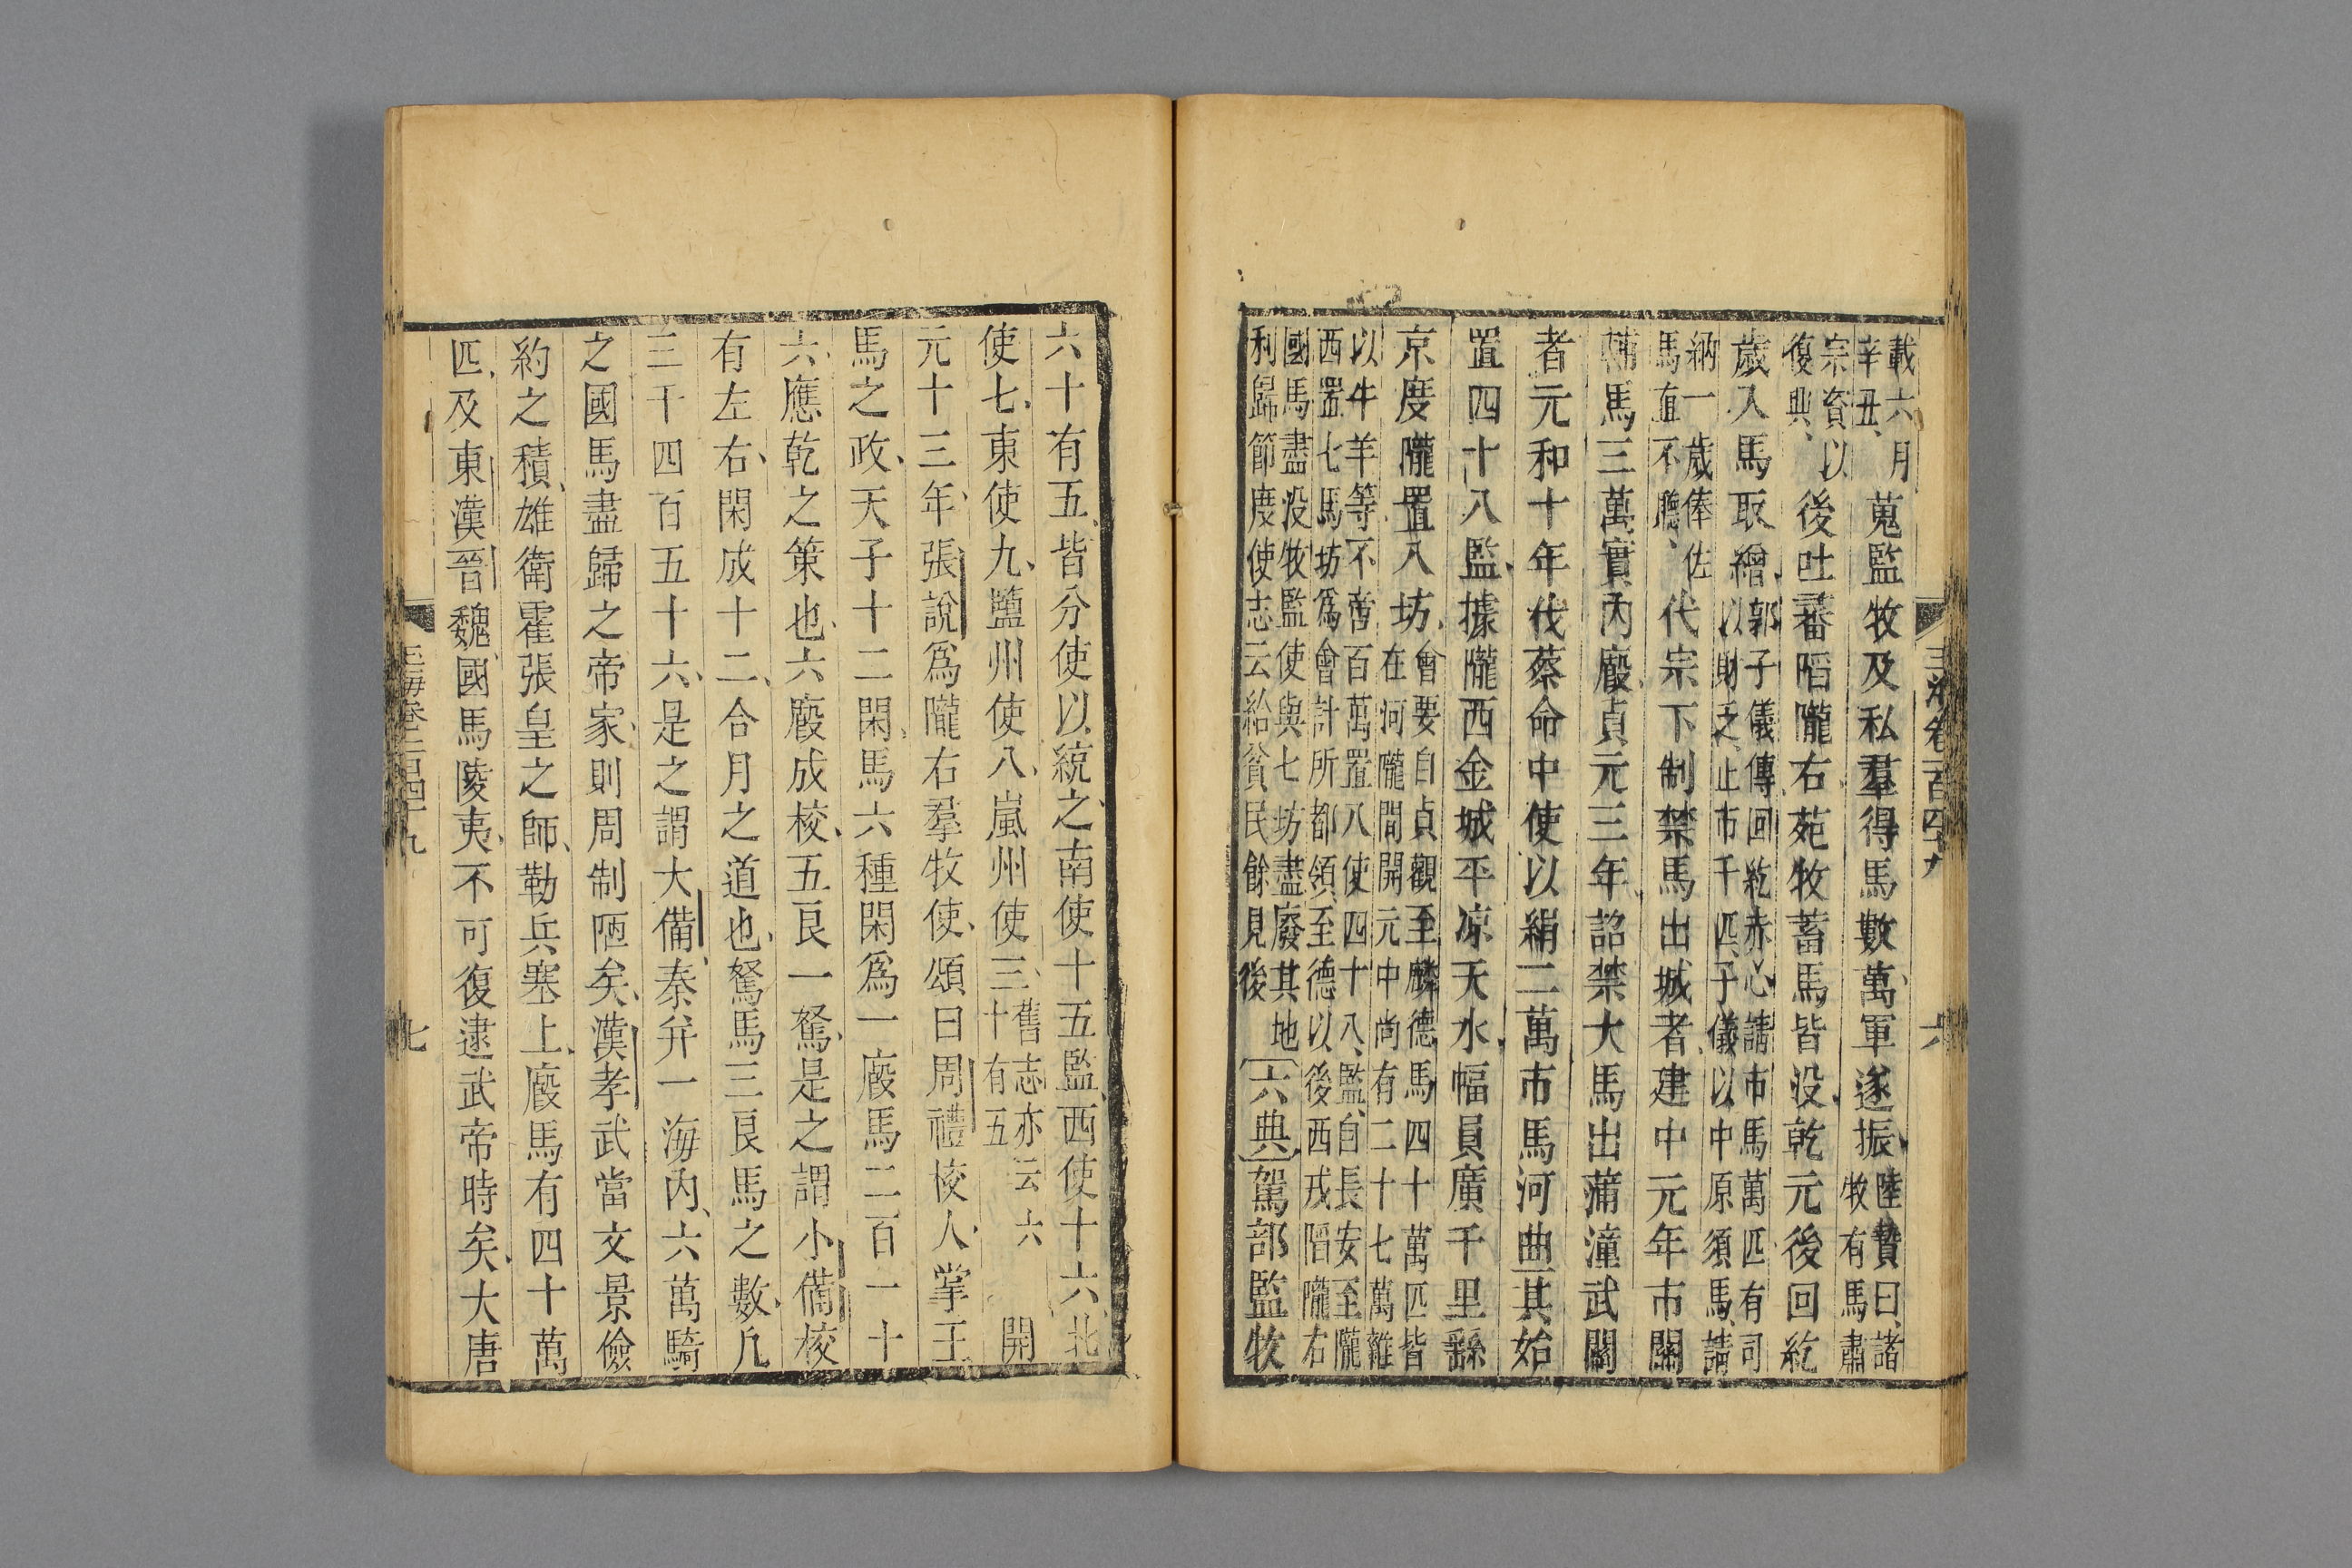 玉海卷一百四十九　六
載六月辛丑、蒐監牧及私羣得馬數萬、軍遂振、陸贄曰、諸牧有馬肅
宗資以復興、後吐蕃陷隴右、苑牧蓄馬皆没、乾元後回紇
歲入馬取繒、郭子儀傳、回紇赤心請市馬萬匹、有司以財乏、止市千匹、子儀以中原須馬、請
納一歲俸佐馬直、不聽、代宗下制禁馬出城者、建中元年市關
輔馬三萬、實內廄、貞元三年、詔禁大馬出蒲潼武關
者、元和十年伐蔡命中使以絹二萬市馬河曲、其始
置四十八監、據隴西金城平凉天水、幅員廣千里、繇
京度隴置八坊、會要自貞觀至麟德馬四十萬匹皆在河隴間開元中尚有二十七萬雜
以牛羊等不啻百萬置八使四十八監、自長安至隴西置七馬坊爲會計所都領、至德以後西戎陷隴右
國馬盡没牧監使與七坊盡廢其地利歸節度使志云給貧民餘見後〔六典〕駕部監牧
六十有五、皆分使以統之、南使十五監、西使十六、北
使七、東使九、鹽州使八、嵐州使三、舊志亦云六十有五　開
元十三年、張說爲隴右羣牧使、頌曰周禮校人、掌王
馬之政、天子十二閑、馬六種、閑爲一廄、馬二百一十
六、應乾之策也、六廄成校、五良一駑、是之謂小備、校
有左右、閑成十二、合月之道也、駑馬三良馬之數、凡
三千四百五十六、是之謂大備、秦并一海內、六萬騎
之國馬盡歸之帝家、則周制陋矣、漢孝武當文景儉
約之積、雄衛霍張皇之師、勒兵塞上、廄馬有四十萬
匹、及東漢晉魏、國馬陵夷、不可復逮武帝時矣、大唐
玉海卷一百四十九　七